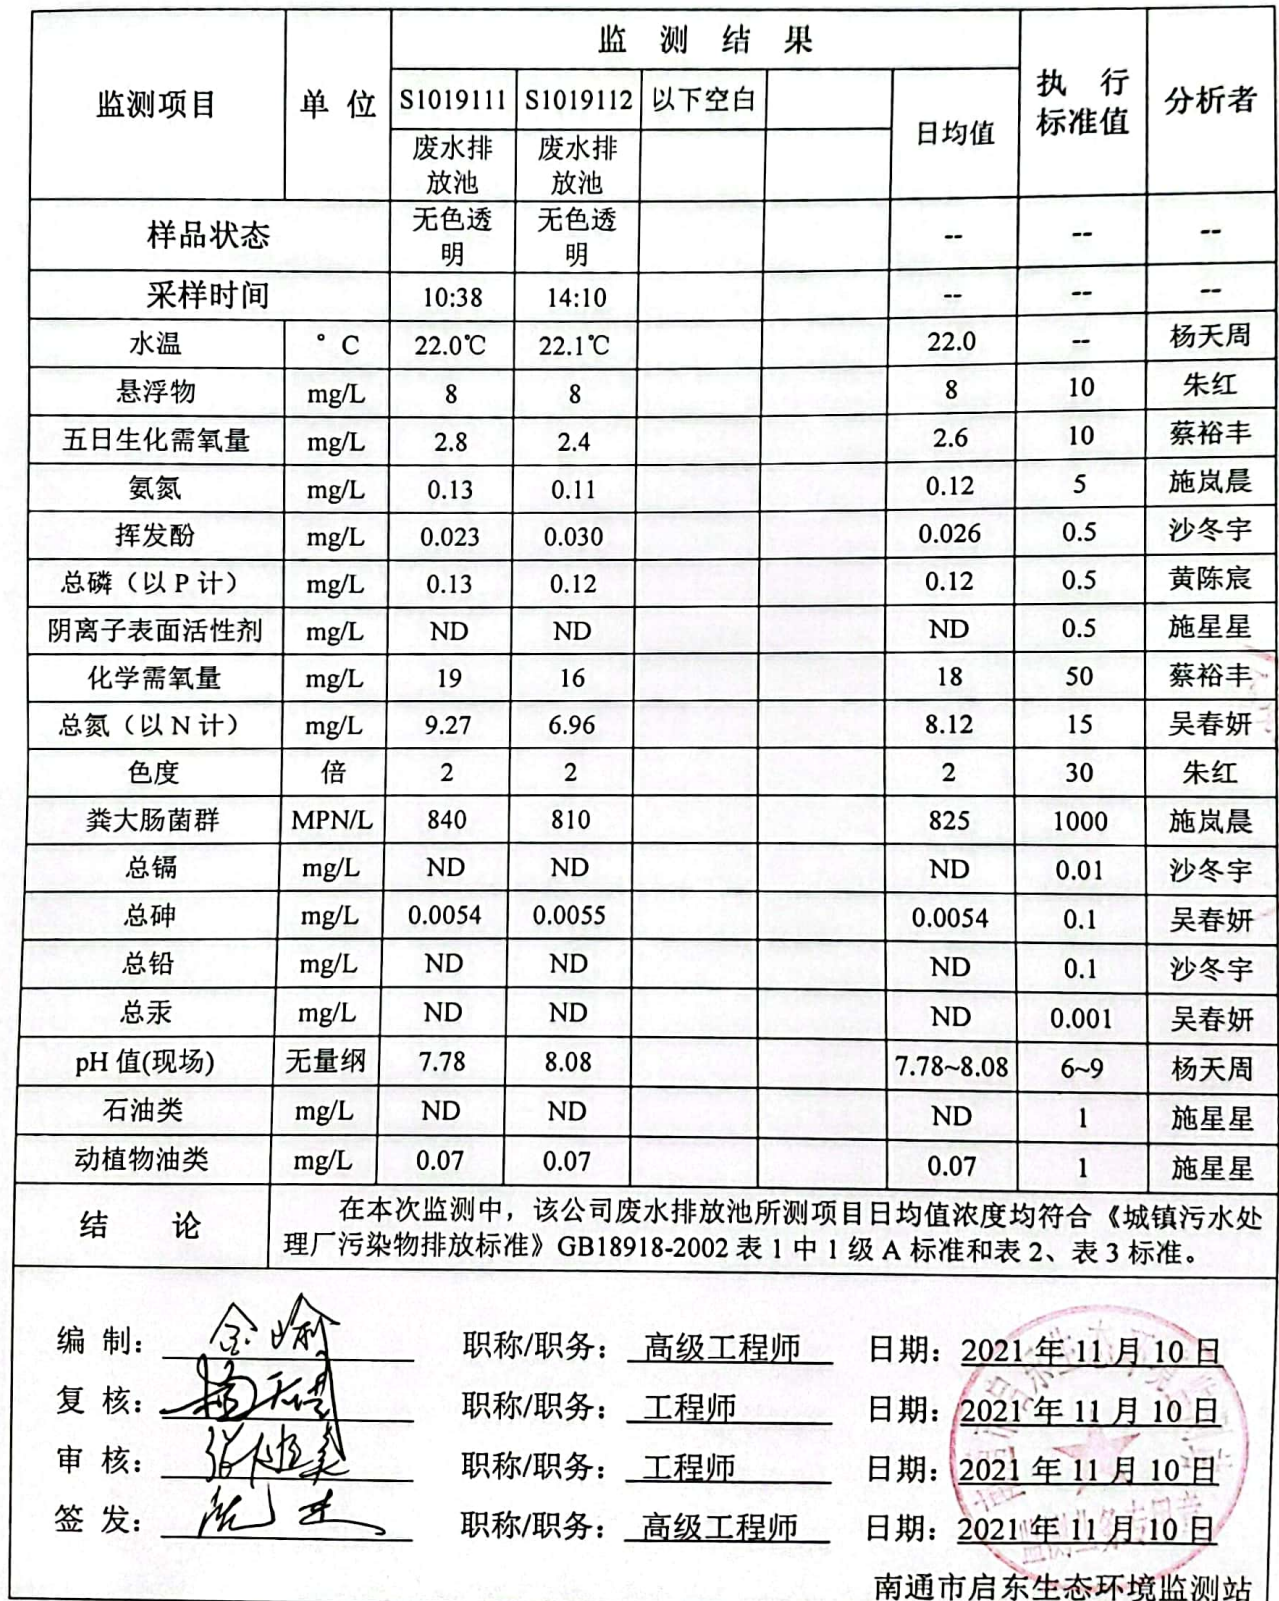 监测项目 单 位 监 测 结 果 执 行标准值 分析者
S1019111 S1019112 以下空白 日均值
废水排放池 废水排放池
样品状态 无色透明 无色透明 -- -- --
采样时间 10:38 14:10 -- -- --
水温 ° C 22.0℃ 22.1℃ 22.0 -- 杨天周
悬浮物 mg/L 8 8 8 10 朱红
五日生化需氧量 mg/L 2.8 2.4 2.6 10 蔡裕丰
氨氮 mg/L 0.13 0.11 0.12 5 施岚晨
挥发酚 mg/L 0.023 0.030 0.026 0.5 沙冬宇
总磷（以 P 计） mg/L 0.13 0.12 0.12 0.5 黄陈宸
阴离子表面活性剂 mg/L ND ND ND 0.5 施星星
化学需氧量 mg/L 19 16 18 50 蔡裕丰
总氮（以 N 计） mg/L 9.27 6.96 8.12 15 吴春妍
色度 倍 2 2 2 30 朱红
粪大肠菌群 MPN/L 840 810 825 1000 施岚晨
总镉 mg/L ND ND ND 0.01 沙冬宇
总砷 mg/L 0.0054 0.0055 0.0054 0.1 吴春妍
总铅 mg/L ND ND ND 0.1 沙冬宇
总汞 mg/L ND ND ND 0.001 吴春妍
pH 值(现场) 无量纲 7.78 8.08 7.78~8.08 6~9 杨天周
石油类 mg/L ND ND ND 1 施星星
动植物油类 mg/L 0.07 0.07 0.07 1 施星星
结 论 在本次监测中，该公司废水排放池所测项目日均值浓度均符合《城镇污水处
理厂污染物排放标准》GB18918-2002 表 1 中 1 级 A 标准和表 2、表 3 标准。
编 制： 职称/职务： 高级工程师 日期：2021 年 11 月 10 日
复 核： 职称/职务： 工程师 日期：2021 年 11 月 10 日
审 核： 职称/职务： 工程师 日期：2021 年 11 月 10 日
签 发： 职称/职务： 高级工程师 日期：2021 年 11 月 10 日
监测业务专用章
南通市启东生态环境监测站